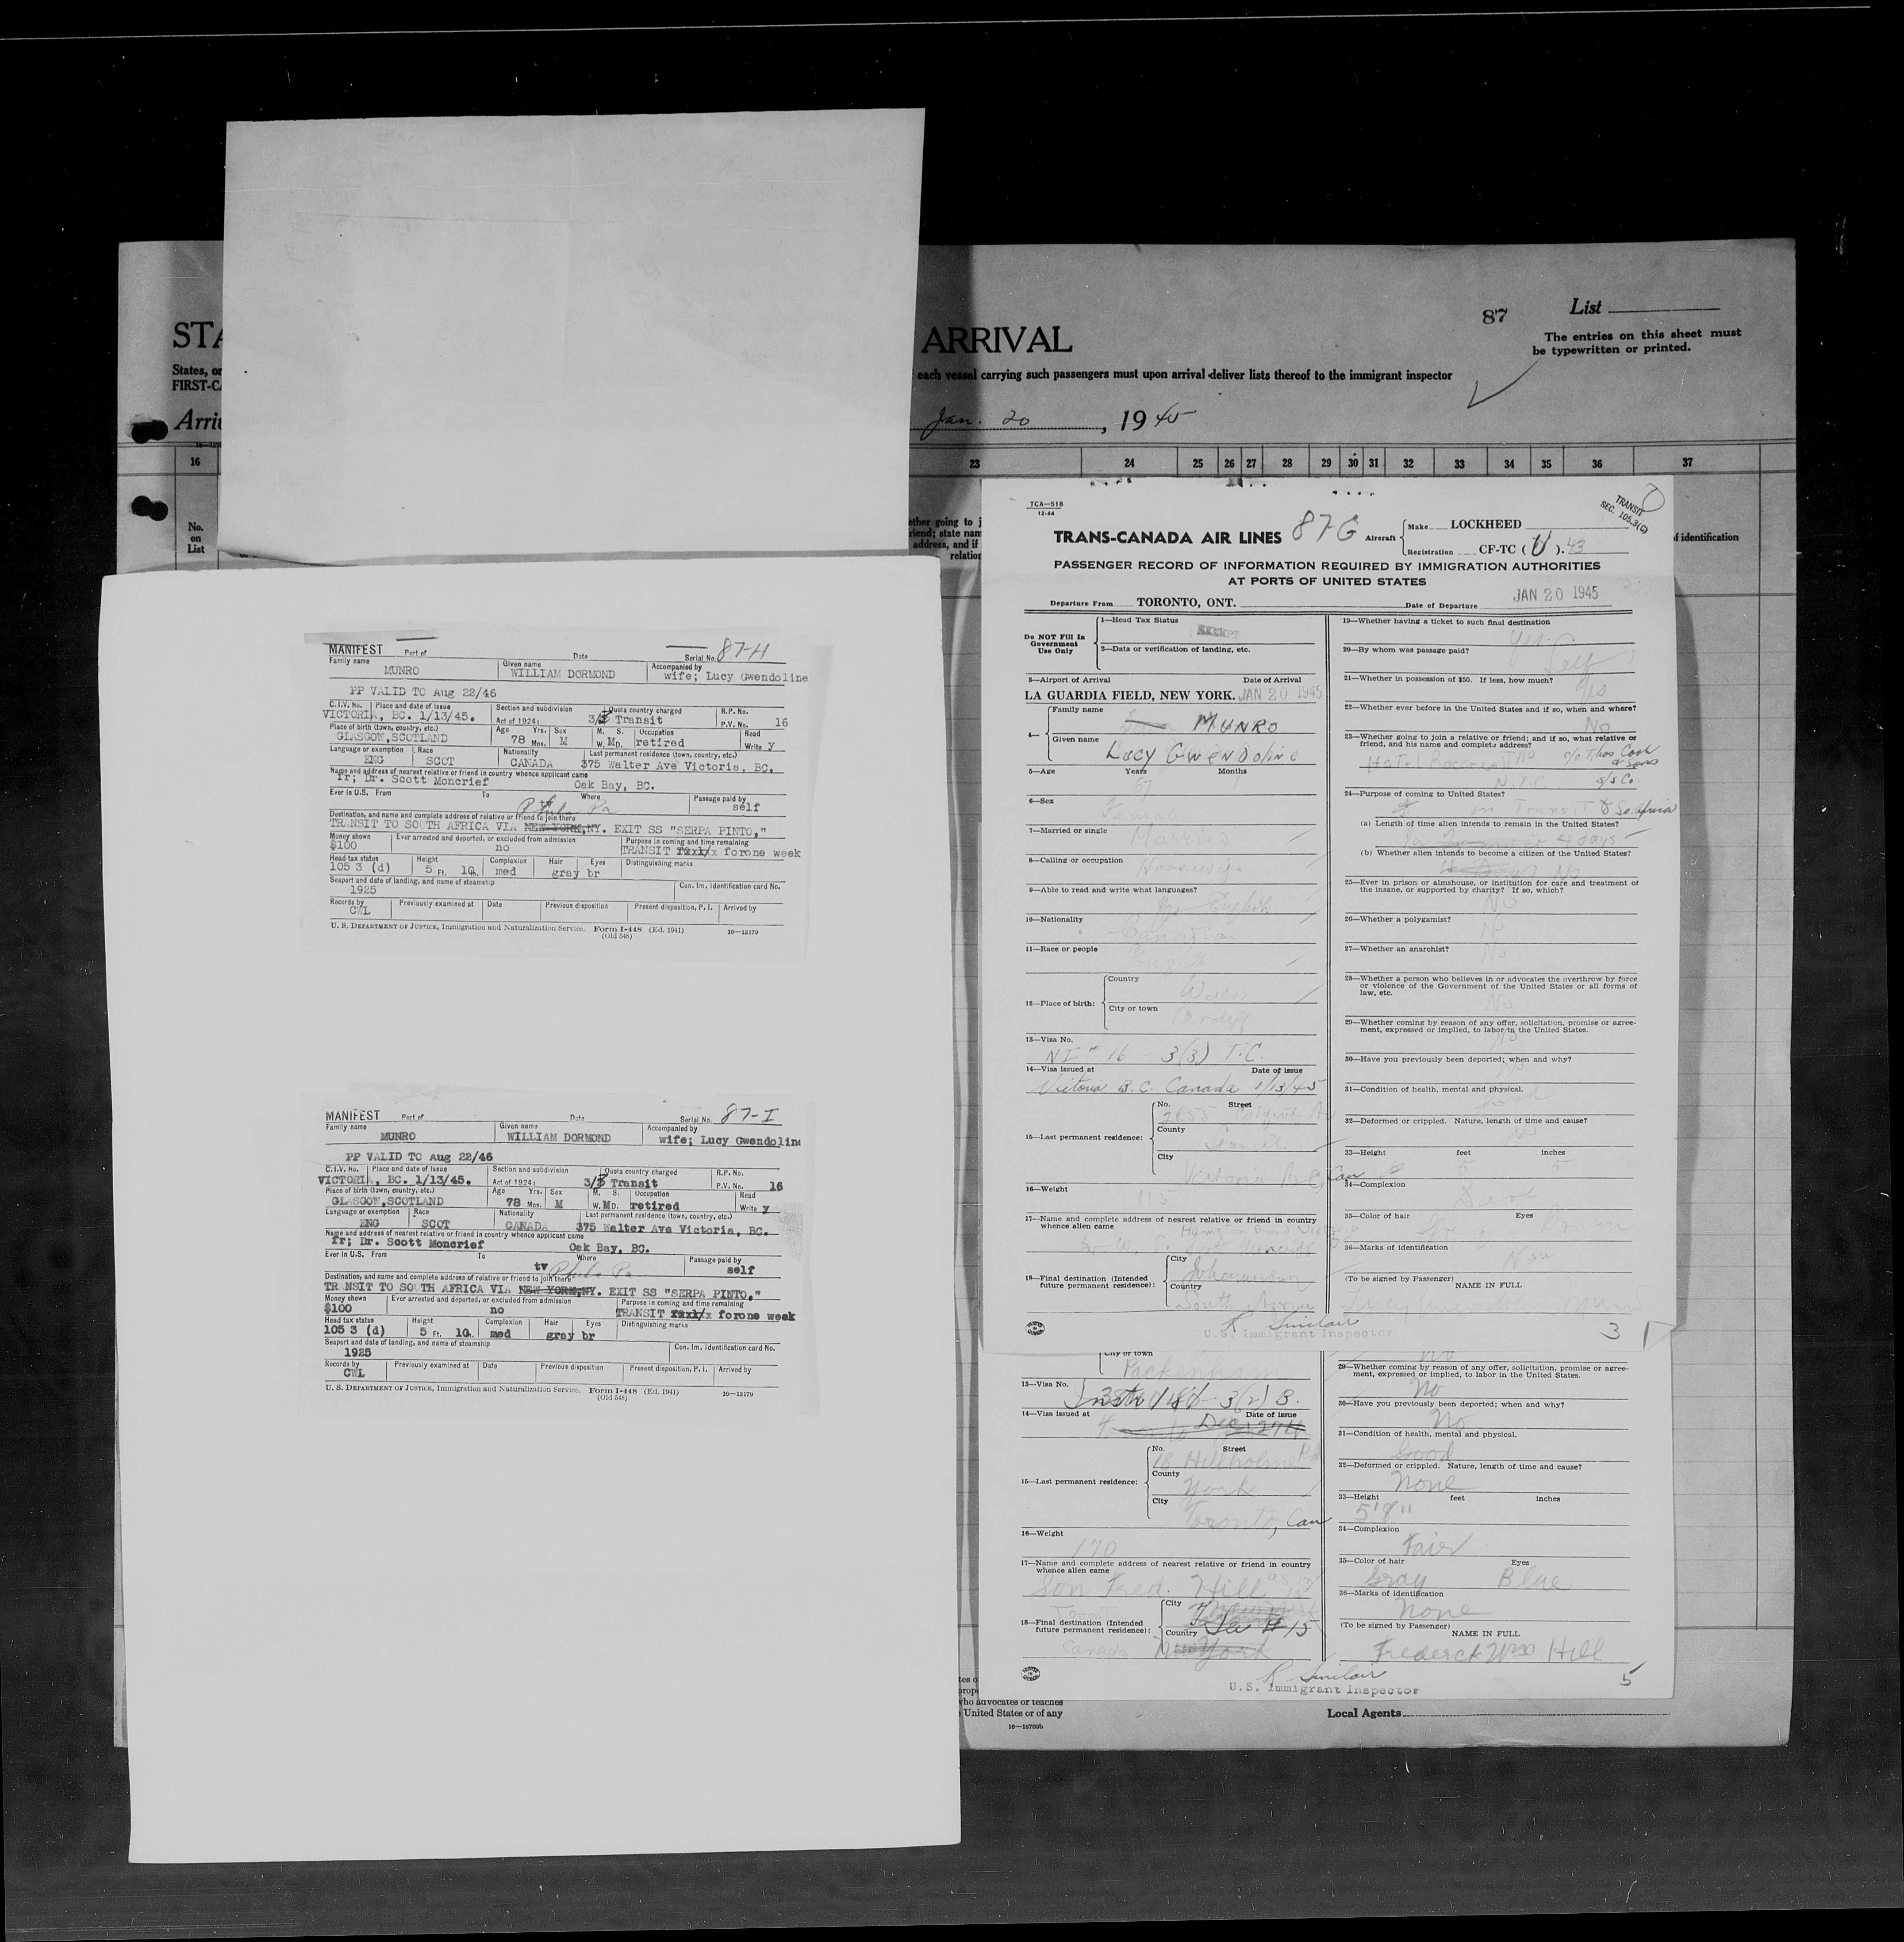 STA
ARRIVAL
87
List
The entries on this sheet must
be typewritten or printed.
States, or
FIRST-C
each vessel carrying such passengers must upon arrival deliver lists thereof to the immigrant inspector
Arri
Jan. 20, 1945
16 23 24 25 26 27 28 29 30 31 32 33 34 35 36 37
No.
on
List
ether going to j
riend; state nam
address, and if
relation
f identification
MANIFEST Port of Date Serial No. 87-H
Family name Given name Accompanied by
MUNRO WILLIAM DORMOND wife; Lucy Gwendoline
PP VALID TO Aug 22/46
C.I.V. No. Place and date of issue Section and subdivision Quota country charged R.P. No.
VICTORIA, BC. 1/13/45. Act of 1924: 3/3 Transit P.V. No. 16
Place of birth (town, country, etc.) Age Yrs. Sex M. S. Occupation Read
GLASGOW,SCOTLAND 78 Mos. M W. MD. retired Write y
Language or exemption Race Nationality Last permanent residence (town, country, etc.)
ENG SCOT CANADA 375 Walter Ave Victoria, BC.
Name and address of nearest relative or friend in country whence applicant came
fr; Dr. Scott Moncrief Oak Bay, BC.
Ever in U.S. From To Where Passage paid by
Phila Pa self
Destination, and name and complete address of relative or friend to join there
TRANSIT TO SOUTH AFRICA VIA NEW YORK,NY. EXIT SS "SERPA PINTO,"
Money shown Ever arrested and deported, or excluded from admission Purpose in coming and time remaining
$100 no TRANSIT forone week
Head tax status Height Complexion Hair Eyes Distinguishing marks
105 3 (d) 5 Ft. 10 med gray br
Seaport and date of landing, and name of steamship Con. Im. Identification card No.
1925
Records by Previously examined at Date Previous disposition Present disposition, P. I. Arrived by
CWL
U. S. DEPARTMENT OF JUSTICE, Immigration and Naturalization Service. Form I-448 (Ed. 1941) 16—13179
(Old 548)
MANIFEST Port of Date Serial No. 87-I
Family name Given name Accompanied by
MUNRO WILLIAM DORMOND wife; Lucy Gwendoline
PP VALID TO Aug 22/46
C.I.V. No. Place and date of issue Section and subdivision Quota country charged R.P. No.
VICTORIA, BC. 1/13/45. Act of 1924: 3/3 Transit P.V. No. 16
Place of birth (town, country, etc.) Age Yrs. Sex M. S. Occupation Read
GLASGOW,SCOTLAND 78 Mos. M W. MD. retired Write y
Language or exemption Race Nationality Last permanent residence (town, country, etc.)
ENG SCOT CANADA 375 Walter Ave Victoria, BC.
Name and address of nearest relative or friend in country whence applicant came
fr; Dr. Scott Moncrief Oak Bay, BC.
Ever in U.S. From To Where Passage paid by
tv Phila Pa self
Destination, and name and complete address of relative or friend to join there
TRANSIT TO SOUTH AFRICA VIA NEW YORK,NY. EXIT SS "SERPA PINTO,"
Money shown Ever arrested and deported, or excluded from admission Purpose in coming and time remaining
$100 no TRANSIT forone week
Head tax status Height Complexion Hair Eyes Distinguishing marks
105 3 (d) 5 Ft. 10 med gray br
Seaport and date of landing, and name of steamship Con. Im. Identification card No.
1925
Records by Previously examined at Date Previous disposition Present disposition, P. I. Arrived by
CWL
U. S. DEPARTMENT OF JUSTICE, Immigration and Naturalization Service. Form I-448 (Ed. 1941) 16—13179
(Old 548)
TCA—518
12-44
TRANSIT
SEC. 105.3(C)
TRANS-CANADA AIR LINES 87G Aircraft Make LOCKHEED
Registration CF-TC (U). 43
PASSENGER RECORD OF INFORMATION REQUIRED BY IMMIGRATION AUTHORITIES
AT PORTS OF UNITED STATES
Departure From TORONTO, ONT. Date of Departure JAN 20 1945
Do NOT Fill In
Government
Use Only
1—Head Tax Status EXEMPT
2—Data or verification of landing, etc.
3—Airport of Arrival Date of Arrival
LA GUARDIA FIELD, NEW YORK. JAN 20 1945
4— Family name MUNRO
Given name Lucy GWENDOLINE
5—Age Years Months
6—Sex Female
7—Married or single Married
8—Calling or occupation Housewife
9—Able to read and write what languages?
English
10—Nationality
11—Race or people
12—Place of birth: Country Wales
City or town
13—Visa No.
NI # 16 - 3(3) T.C.
14—Visa issued at Date of issue
Victoria B.C. Canada 1/13/45
15—Last permanent residence: No. Street
County
City
Victoria B.C. Can
16—Weight 115
17—Name and complete address of nearest relative or friend in country
whence alien came
18—Final destination (Intended
future permanent residence): City
Country South Africa
R Sinclair
U.S. Immigrant Inspector
19—Whether having a ticket to such final destination
Yes
20—By whom was passage paid?
Self
21—Whether in possession of $50. If less, how much?
Yes
22—Whether ever before in the United States and if so, when and where?
No
23—Whether going to join a relative or friend; and if so, what relative or
friend, and his name and complete address?
c/o Thos Cook
& Sons
Hotel Roosevelt
N.Y.C. S/S Co.
24—Purpose of coming to United States?
in Transit to So. Africa
(a) Length of time alien intends to remain in the United States?
4 days
(b) Whether alien intends to become a citizen of the United States?
No
25—Ever in prison or almshouse, or institution for care and treatment of
the insane, or supported by charity? If so, which?
No
26—Whether a polygamist?
No
27—Whether an anarchist?
No
28—Whether a person who believes in or advocates the overthrow by force
or violence of the Government of the United States or all forms of
law, etc.
No
29—Whether coming by reason of any offer, solicitation, promise or agree-
ment, expressed or implied, to labor in the United States.
No
30—Have you previously been deported; when and why?
31—Condition of health, mental and physical.
32—Deformed or crippled. Nature, length of time and cause?
33—Height feet inches
5 5
34—Complexion
35—Color of hair Eyes
36—Marks of identification
(To be signed by Passenger) NAME IN FULL
3
City or town
13—Visa No.
3(2) B.
14—Visa issued at Date of issue
15—Last permanent residence: No. Street
18 Hillholm Rd
County York
City
Toronto, Can
16—Weight 170
17—Name and complete address of nearest relative or friend in country
whence alien came
Son Fred. Hill
18—Final destination (Intended
future permanent residence): City
See # 15
Country New York
Canada
R Sinclair
U.S. Immigrant Inspector
29—Whether coming by reason of any offer, solicitation, promise or agree-
ment, expressed or implied, to labor in the United States.
No
30—Have you previously been deported; when and why?
No
31—Condition of health, mental and physical.
Good
32—Deformed or crippled. Nature, length of time and cause?
None
33—Height feet inches
5'8"
34—Complexion
Fair
35—Color of hair Eyes
Gray Blue
36—Marks of identification
None
(To be signed by Passenger) NAME IN FULL
Frederick Wm Hill
5
who advocates or teaches
United States or of any
16—18709b
Local Agents